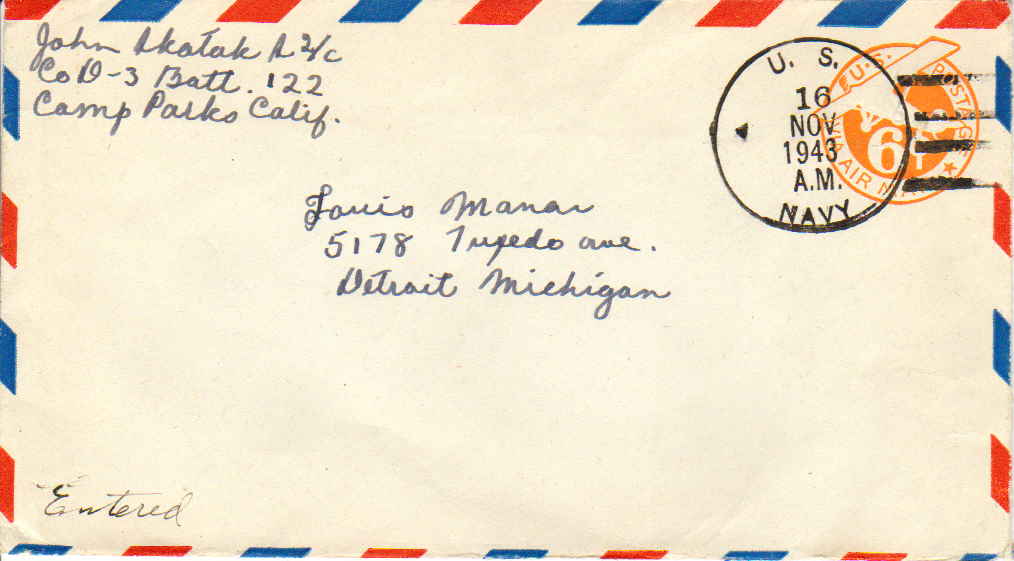 John Skatuk S 2/c
Co D-3 Batt. 122
Camp Parks Calif.
U. S.
16
NOV
1943
A.M.
NAVY
U.S. POSTAGE
6¢
VIA AIR MAIL
Louis Manar
5178 Tuxedo ave.
Detroit Michigan
Entered